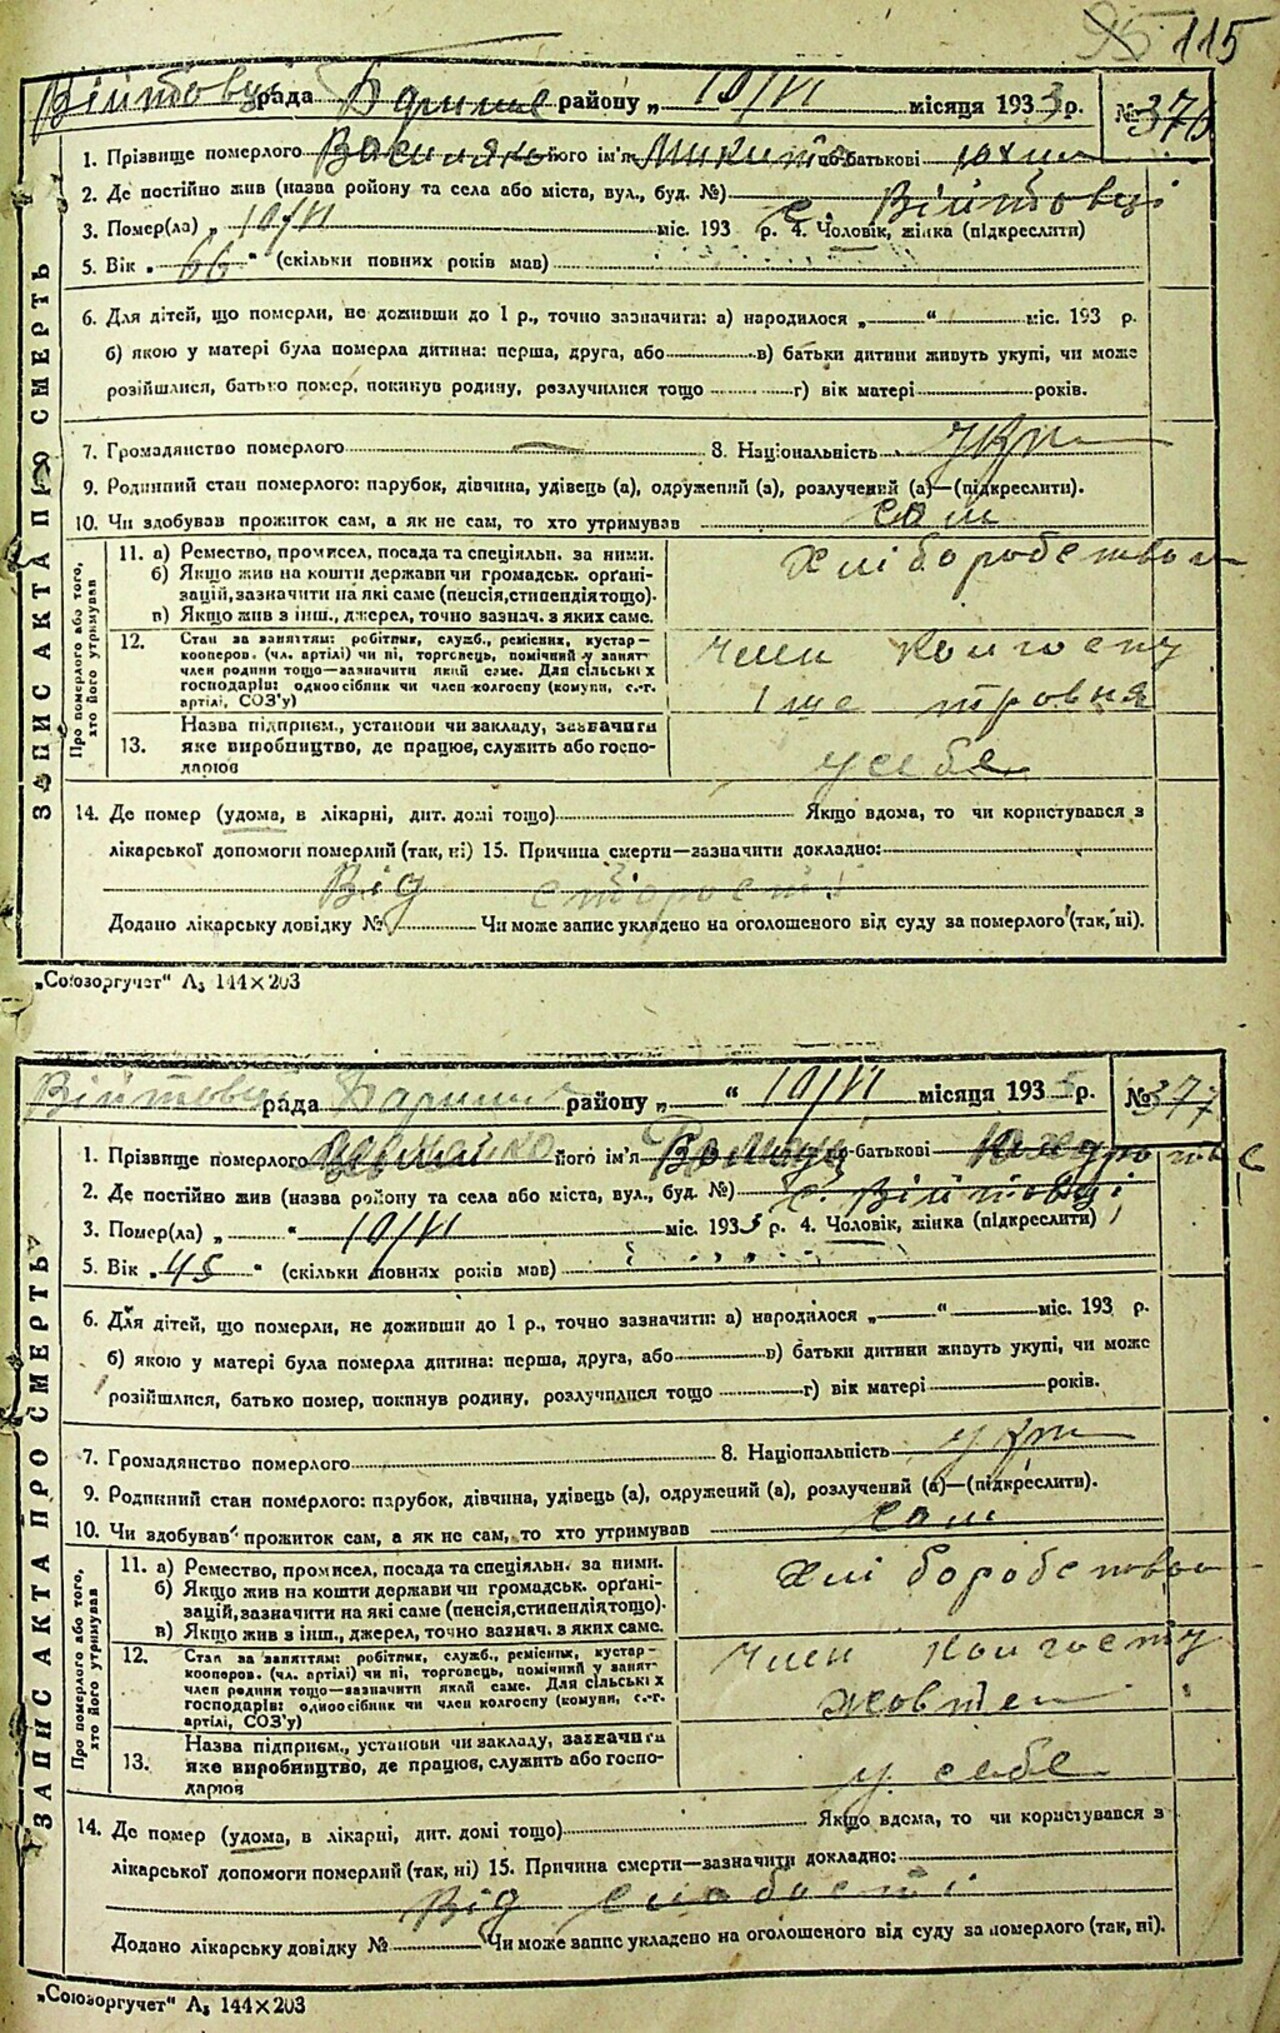 115
Війтовці рада Бариш району „ 10/VI місяця 1933 р. № 376
1. Прізвище померлого Василяко його ім'я Микита по-батькові
2. Де постійно жив (назва ройону та села або міста, вул., буд. №) с. Війтовці
3. Помер(ла) „ 10/VI міс. 193 р. 4. Чоловік, жінка (підкреслити)
5. Вік „ 66 “ (скільки повних років мав)
6. Для дітей, що померли, не доживши до 1 р., точно зазначити: а) народилося „ “ міс. 193 р.
б) якою у матері була померла дитина: перша, друга, або в) батьки дитини живуть укупі, чи може
розійшлися, батько помер, покинув родину, розлучилися тощо г) вік матері років.
7. Громадянство померлого 8. Національність укр
9. Родинний стан померлого: парубок, дівчина, удівець (а), одружений (а), розлучений (а)—(підкреслити).
10. Чи здобував прожиток сам, а як не сам, то хто утримував сам
ЗАПИС АКТА ПРО СМЕРТЬ
Про померлого або того, хто його утримував
11. а) Ремество, промисел, посада та спеціяльн. за ними. Хліборобство
б) Якщо жив на кошти держави чи громадськ. орґані-
зацій, зазначити на які саме (пенсія, стипендія тощо).
в) Якщо жив з інш., джерел, точно зазнач. з яких саме.
12. Стан за заняттям: робітник, служб., ремісник, кустар— член колгоспу
кооперов. (чл. артілі) чи ні, торговець, помічний у занят-
член родини тощо—зазначити який саме. Для сільських
господарів: одноосібник чи член колгоспу (комуни, с.-г. 1ше травня
артілі, СОЗ'у)
13. Назва підприєм., установи чи закладу, зазначити
яке виробництво, де працює, служить або госпо- у себе
дарює
14. Де помер (удома, в лікарні, дит. домі тощо) Якщо вдома, то чи користувався з
лікарської допомоги померлий (так, ні) 15. Причина смерти—зазначити докладно:
Від старості
Додано лікарську довідку № Чи може запис укладено на оголошеного від суду за померлого (так, ні).
„Союзоргучет“ А₃ 144×203
Війтовці рада Бариш району „ “ 10/VI місяця 1933 р. № 377
1. Прізвище померлого його ім'я по-батькові
2. Де постійно жив (назва ройону та села або міста, вул., буд. №) с. Війтовці
3. Помер(ла) „ “ 10/VI міс. 1933 р. 4. Чоловік, жінка (підкреслити)
5. Вік „ 45 “ (скільки повних років мав)
6. Для дітей, що померли, не доживши до 1 р., точно зазначити: а) народилося „ “ міс. 193 р.
б) якою у матері була померла дитина: перша, друга, або в) батьки дитини живуть укупі, чи може
розійшлися, батько помер, покинув родину, розлучилися тощо г) вік матері років.
7. Громадянство померлого 8. Національність укр
9. Родинний стан померлого: парубок, дівчина, удівець (а), одружений (а), розлучений (а)—(підкреслити).
10. Чи здобував прожиток сам, а як не сам, то хто утримував сам
ЗАПИС АКТА ПРО СМЕРТЬ
Про померлого або того, хто його утримував
11. а) Ремество, промисел, посада та спеціяльн. за ними. Хліборобство
б) Якщо жив на кошти держави чи громадськ. орґані-
зацій, зазначити на які саме (пенсія, стипендія, тощо).
в) Якщо жив з інш., джерел, точно зазнач. з яких саме.
12. Стан за заняттям: робітник, служб., ремісник, кустар— член колгоспу
кооперов. (чл. артілі) чи ні, торговець, помічний у занят-
член родини тощо—зазначити який саме. Для сільських
господарів: одноосібник чи член колгоспу (комуни, с.-г. жовтен
артілі, СОЗ'у)
13. Назва підприєм., установи чи закладу, зазначити
яке виробництво, де працює, служить або госпо- у себе
дарює
14. Де помер (удома, в лікарні, дит. домі тощо) Якщо вдома, то чи користувався з
лікарської допомоги померлий (так, ні) 15. Причина смерти—зазначити докладно:
Від слабості
Додано лікарську довідку № Чи може запис укладено на оголошеного від суду за померлого (так, ні).
„Союзоргучет“ А₃ 144×203